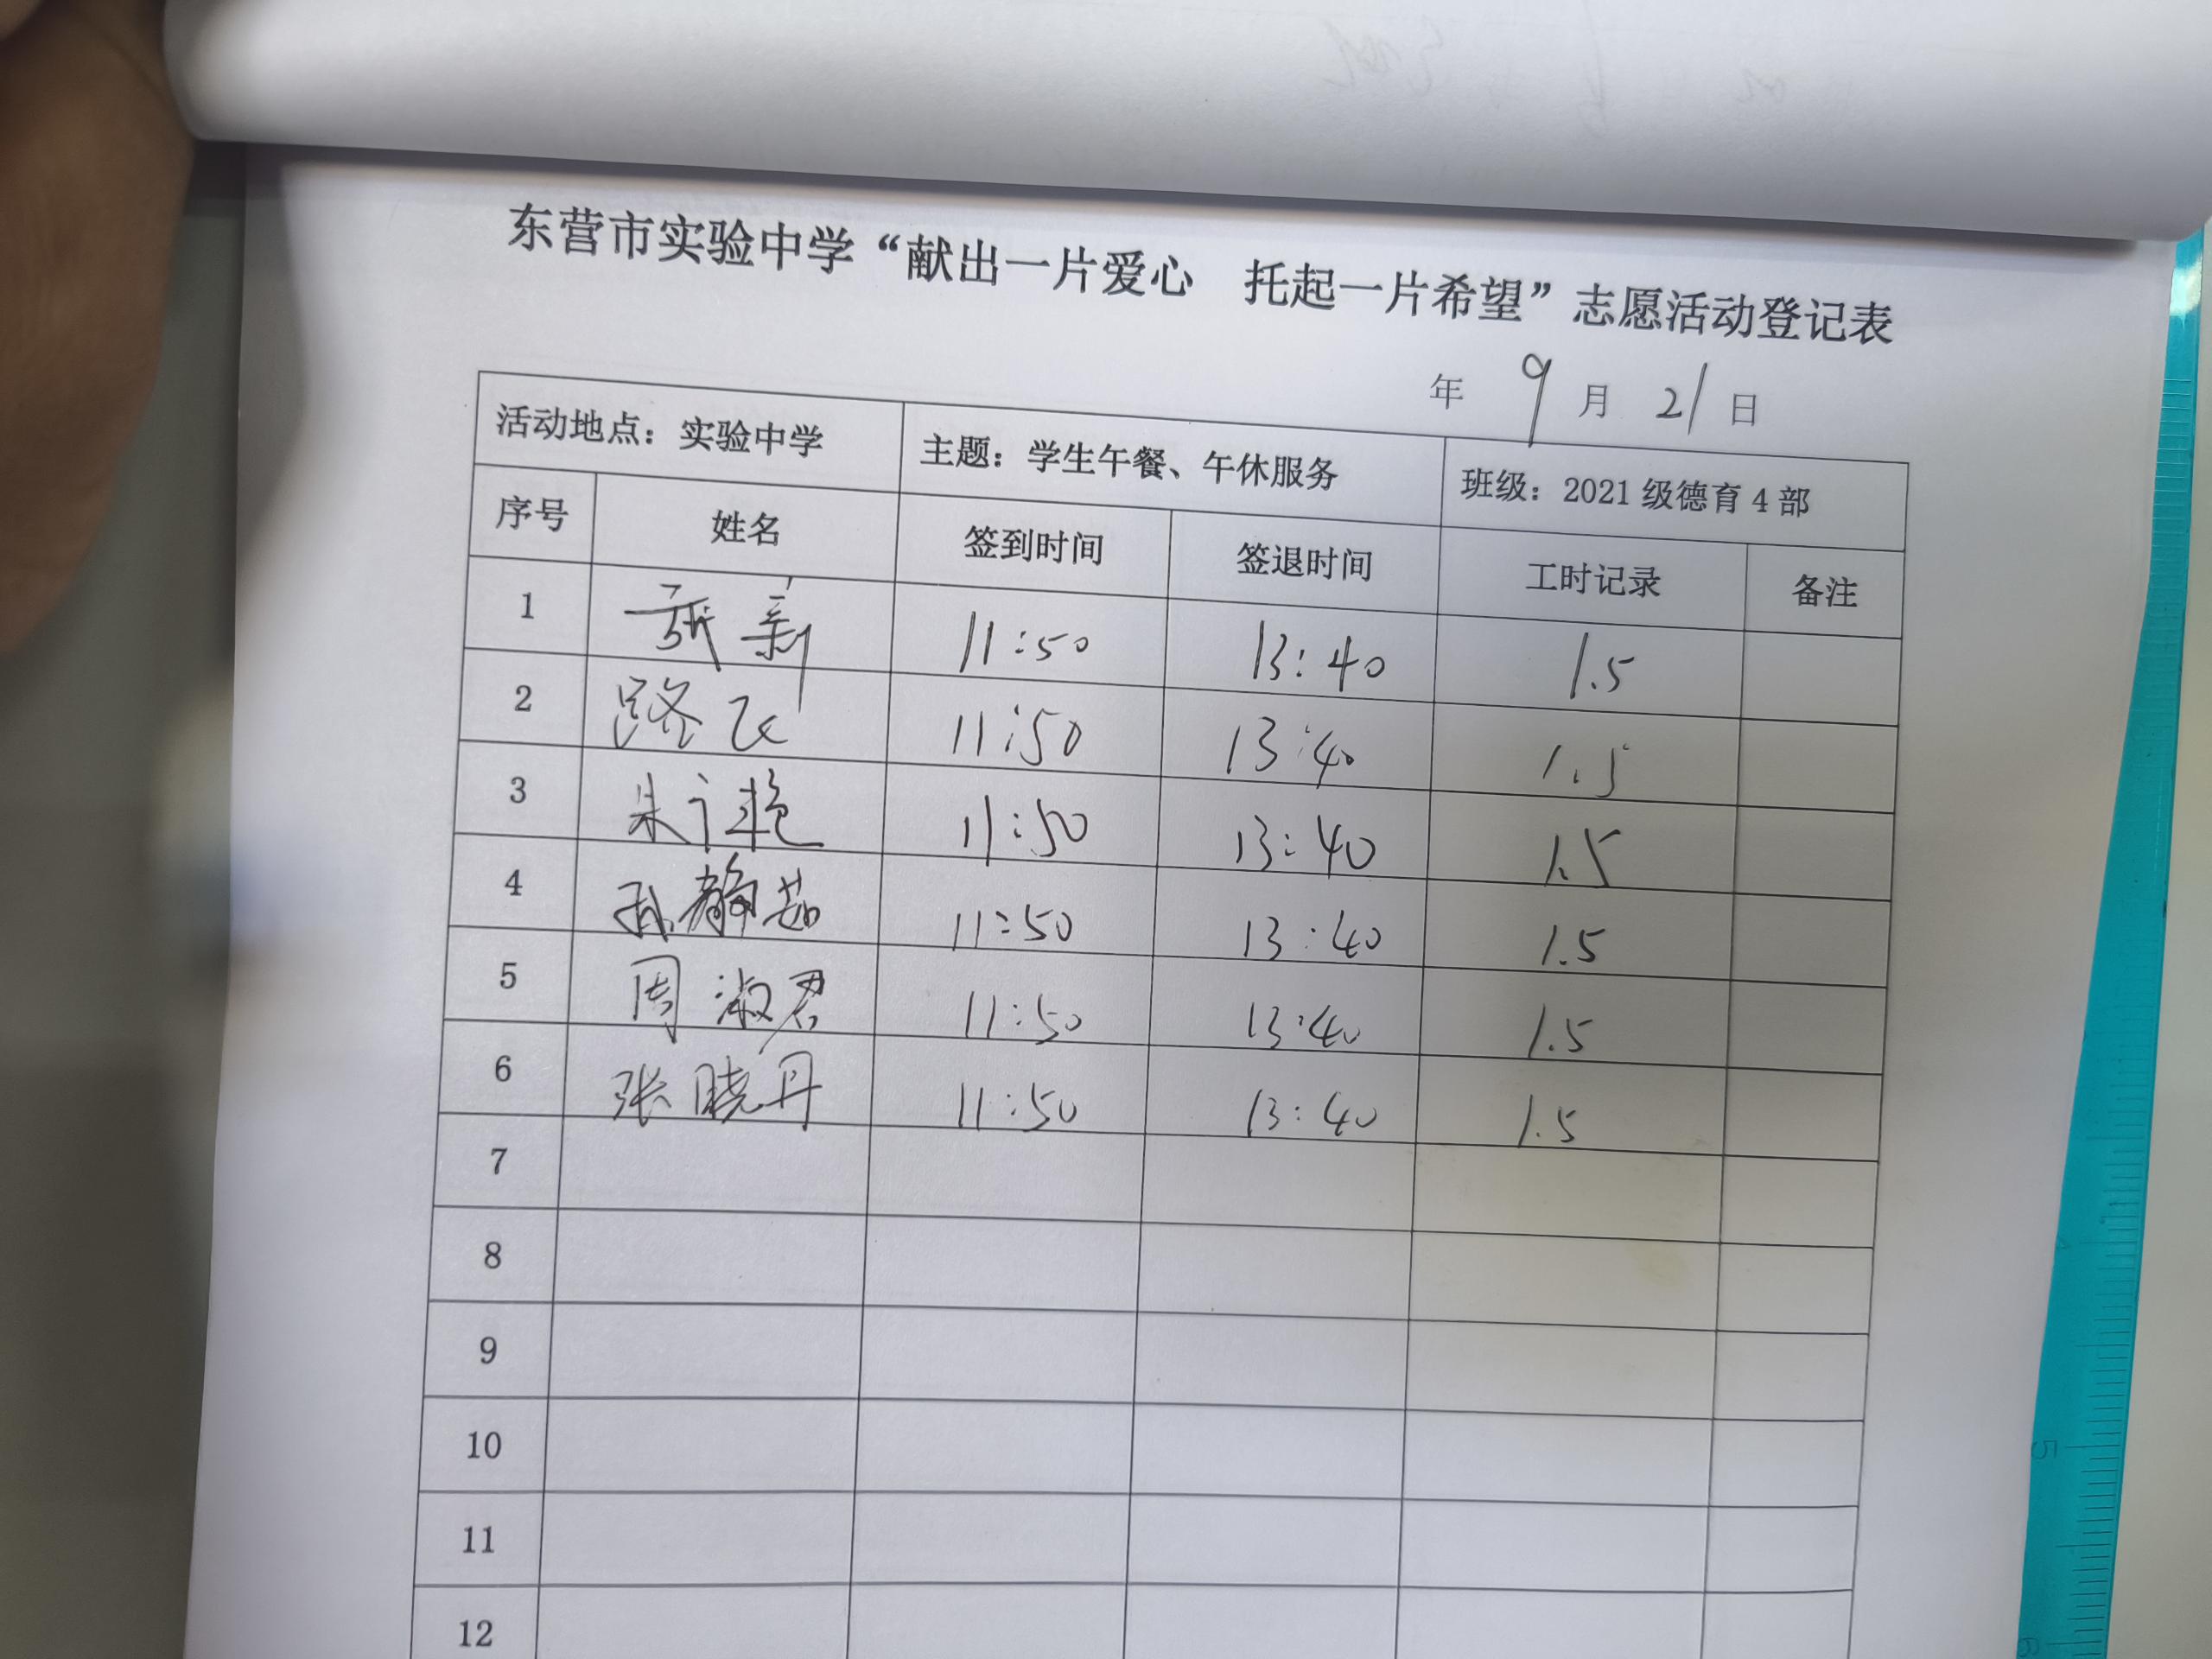 东营市实验中学“献出一片爱心 托起一片希望”志愿活动登记表
年 9 月 21 日
活动地点：实验中学 主题：学生午餐、午休服务 班级：2021 级德育 4 部
序号 姓名 签到时间 签退时间 工时记录 备注
1 新 11:50 13:40 1.5
2 路飞 11:50 13:40 1.5
3 朱 艳 11:50 13:40 1.5
4 孙静茹 11:50 13:40 1.5
5 周淑君 11:50 13:40 1.5
6 张晓丹 11:50 13:40 1.5
7
8
9
10
11
12